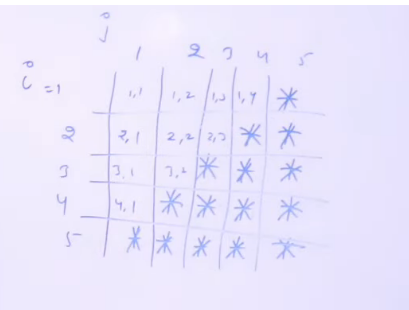 j
1 2 3 4 5
i =1 1,1 1,2 1,3 1,4 *
2 2,1 2,2 2,3 * *
3 3,1 3,2 * * *
4 4,1 * * * *
5 * * * * *